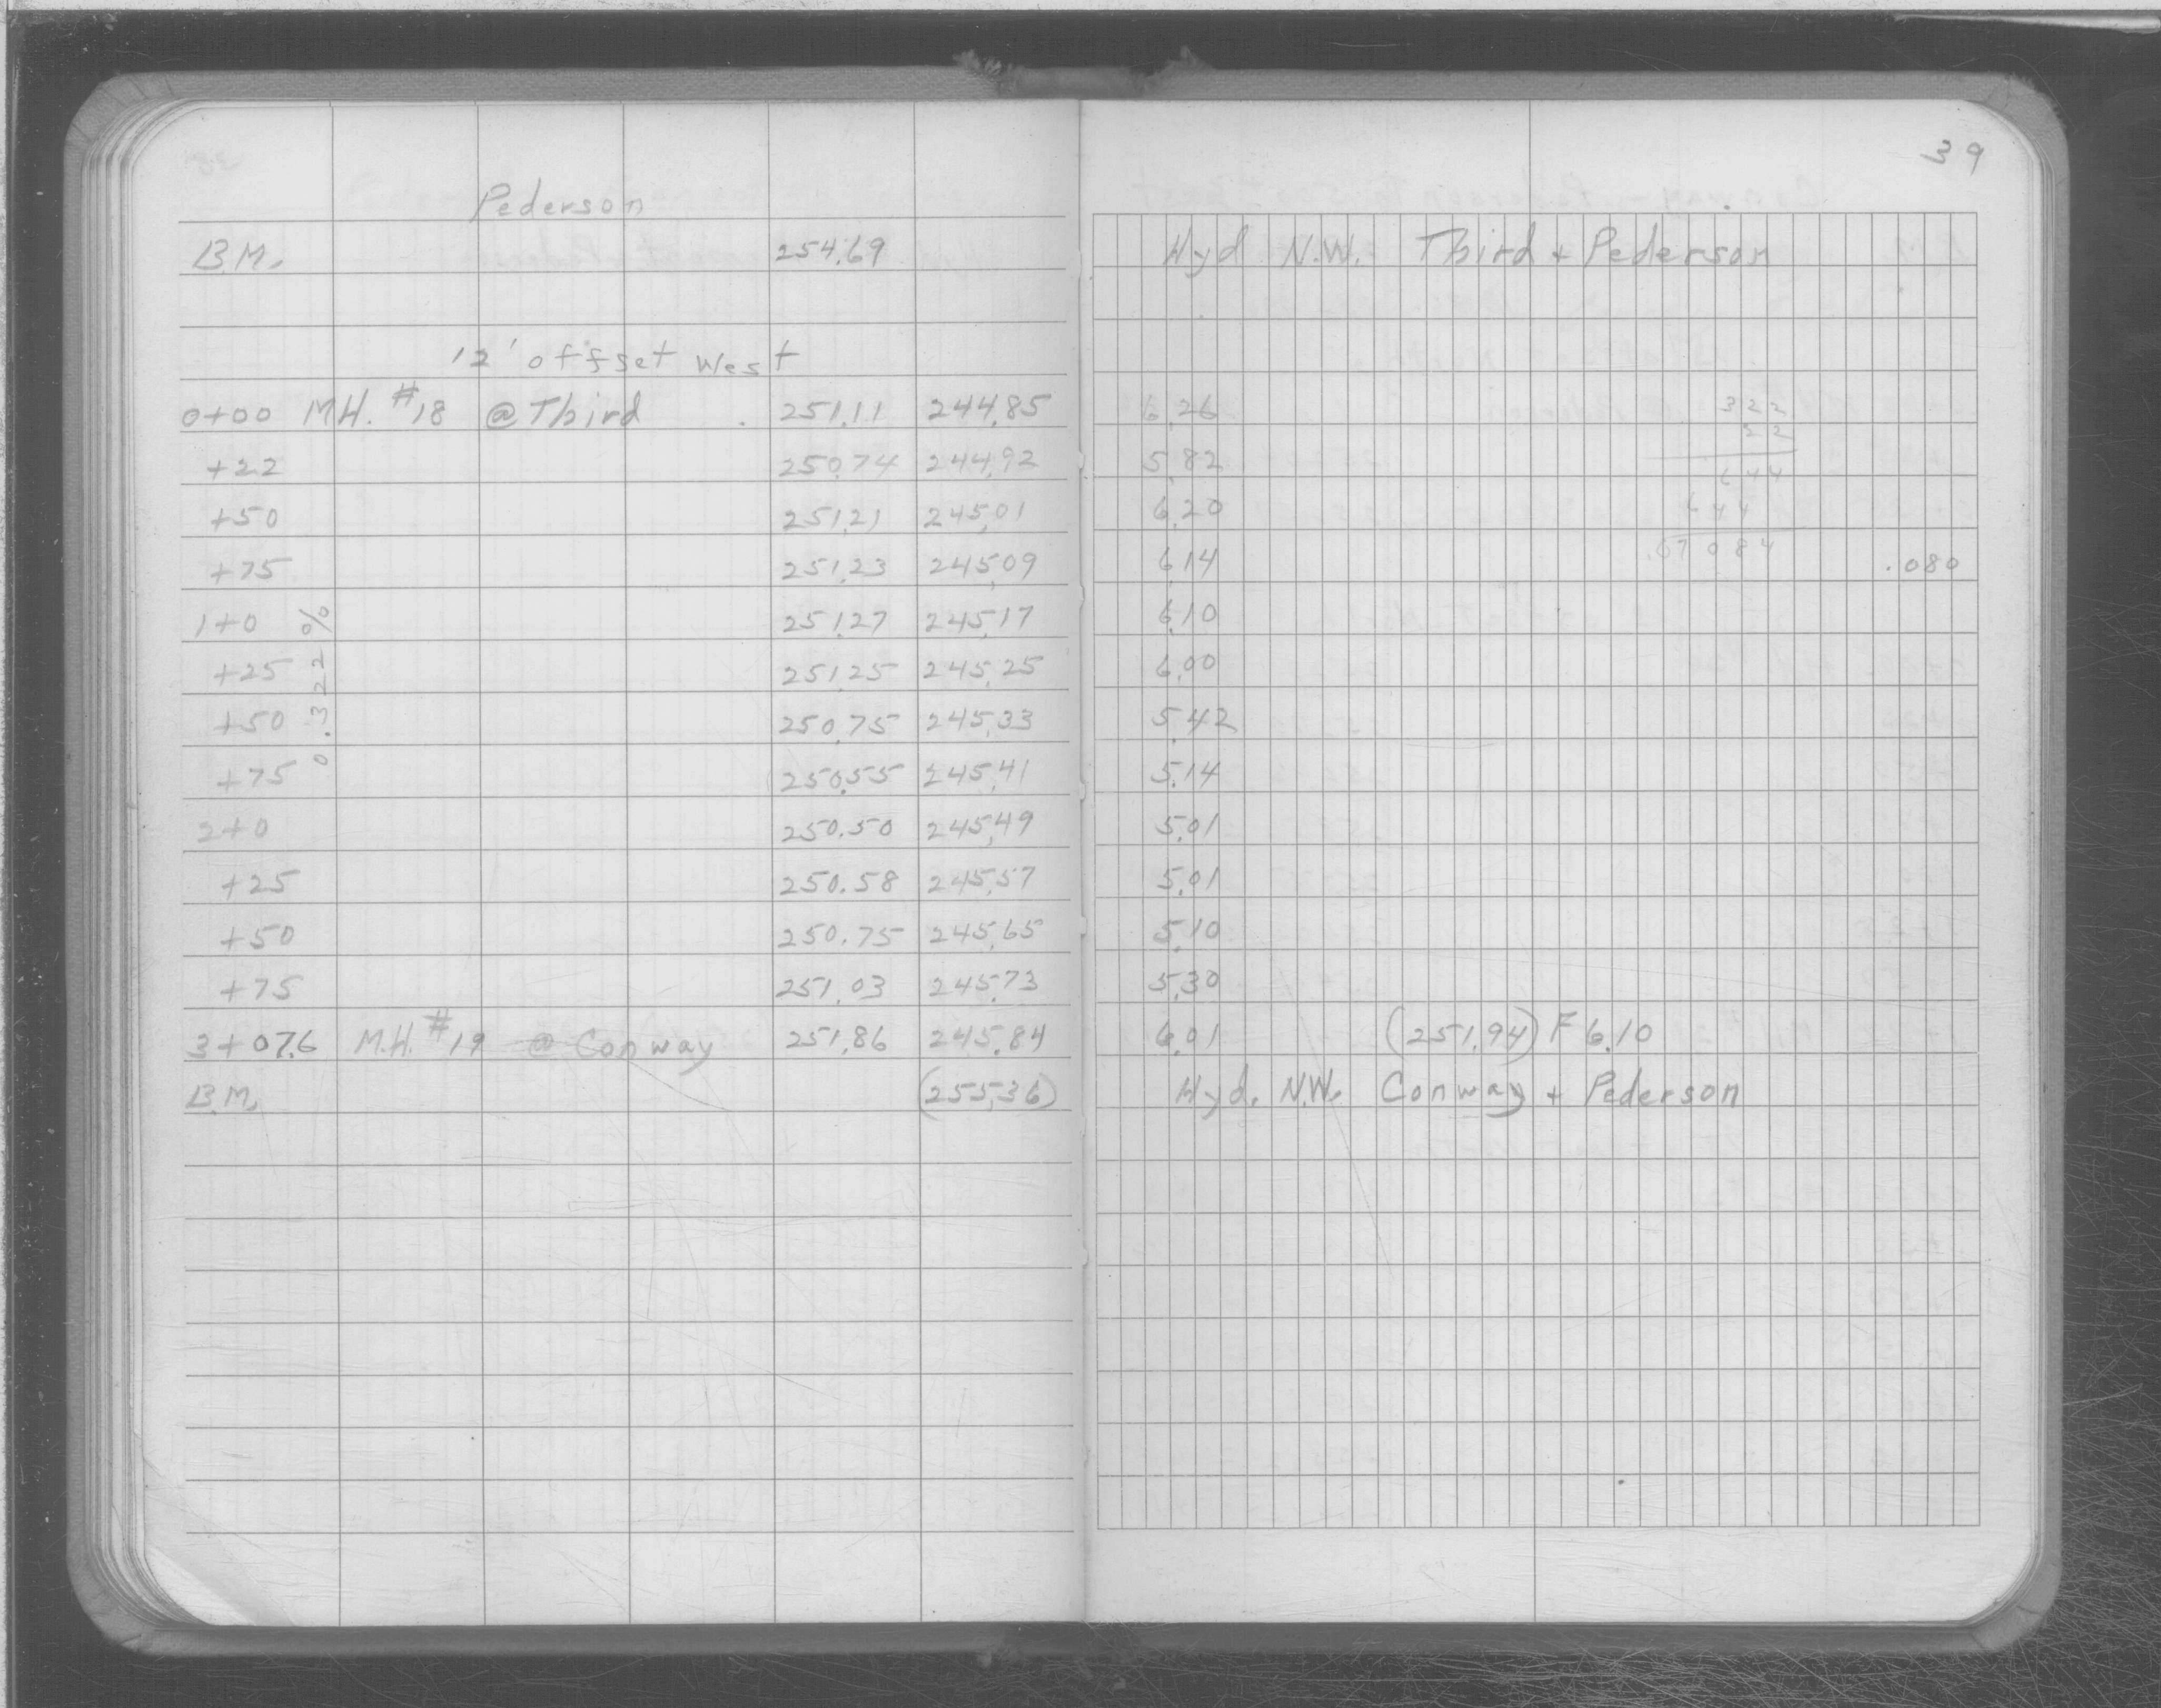 39
Pederson
B.M. 254.69 Hyd N.W. Third + Pederson
12' offset West
0+00 M.H. #18 @ Third 251.11 244.85 6.26 322
22
+22 250.74 244.92 5.82 644
+50 251.21 245.01 6.20 644
+75 251.23 245.09 6.14 .07084 .080
1+0 251.27 245.17 6.10
+25 251.25 245.25 6.00
+50 250.75 245.33 5.42
+75 250.55 245.41 5.14
0.322%
2+0 250.50 245.49 5.01
+25 250.58 245.57 5.01
+50 250.75 245.65 5.10
+75 251.03 245.73 5.30
3+07.6 M.H. #19 @ Conway 251.86 245.84 6.01 (251.94) F 6.10
B.M. (255.36) Hyd. N.W. Conway + Pederson